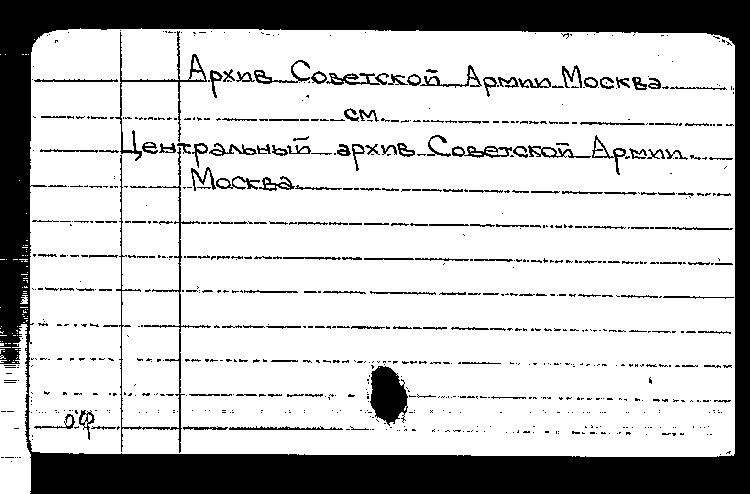 Архив Советской Армии Москва
см.
Центральный архив Советской Армии.
Москва.
оф